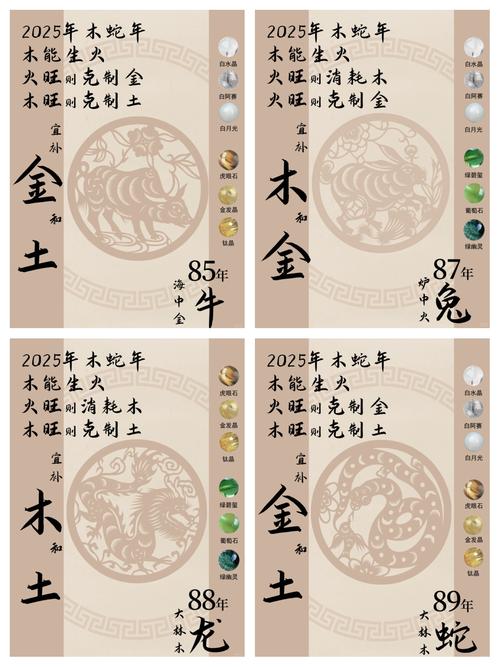 2025年 木蛇年
木能生火
火旺则克制金
木旺则克制土
宜补
金
和
土
白水晶
白阿赛
白月光
虎眼石
金发晶
钛晶
85年
海中金
牛
2025年 木蛇年
木能生火
火旺则消耗木
木旺则克制金
宜补
木
和
金
白水晶
白阿赛
白月光
绿碧玺
葡萄石
绿幽灵
87年
炉中火
兔
2025年 木蛇年
木能生火
火旺则消耗木
木旺则克制土
宜补
木
和
土
虎眼石
金发晶
钛晶
绿碧玺
葡萄石
绿幽灵
88年
大林木
龙
2025年 木蛇年
木能生火
火旺则克制金
木旺则克制土
宜补
金
和
土
白水晶
白阿赛
白月光
虎眼石
金发晶
钛晶
89年
大林木
蛇